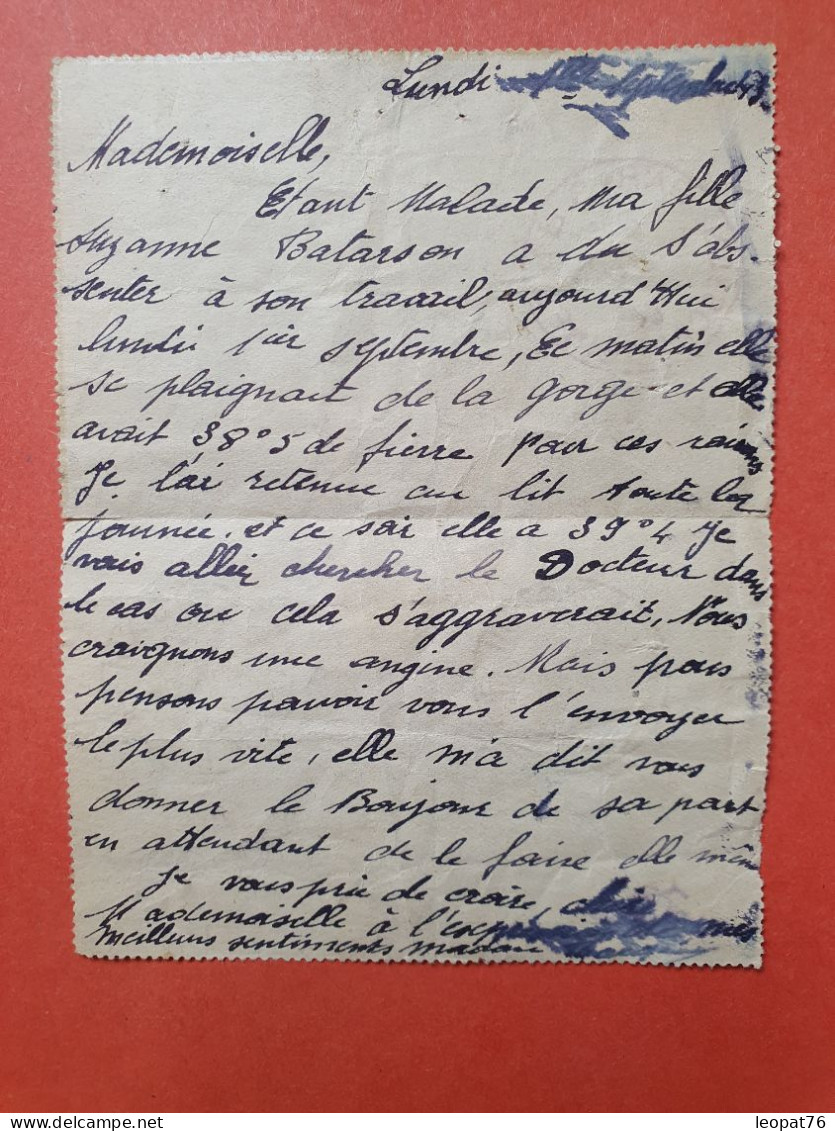 Lundi
Mademoiselle,
Etant Malade, Ma fille
Suzanne Batarson a du s'abs-
senter à son travail, aujourd'Hui
lundi 1ier septembre, Ce matin elle
se plaignait de la gorge et elle
avait 38°5 de fievre pour ces raisons
Je l'ai retenue au lit toute la
journée. et ce soir elle a 39°4 Je
vais aller chercher le Docteur dans
le cas ou cela s'aggraverait, Nous
craignons une angine. Mais nous
pensons pouvoir vous l'envoyer
le plus vite, elle m'a dit vous
donner le Bonjour de sa part
en attendant de le faire elle même
Je vous prie de croire,
Mademoiselle à l' mes
meilleurs sentiments madame
leopat76